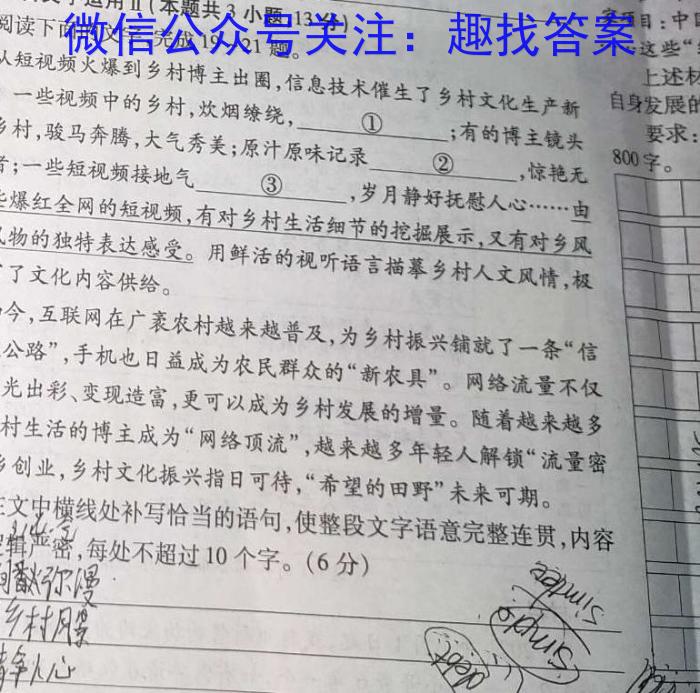 字运用Ⅱ(本题共3小题,13分)
阅读下面的文字,完成19~21题。
微信公众号关注：趣找答案
从短视频火爆到乡村博主出圈,信息技术催生了乡村文化生产新
一些视频中的乡村,炊烟缭绕,①;有的博主镜头
乡村,骏马奔腾,大气秀美;原汁原味记录②,惊艳无
者;一些短视频接地气③,岁月静好抚慰人心……由
些爆红全网的短视频,有对乡村生活细节的挖掘展示,又有对乡风
风物的独特表达感受。用鲜活的视听语言描摹乡村人文风情,极
了文化内容供给。
如今,互联网在广袤农村越来越普及,为乡村振兴铺就了一条“信
公路”,手机也日益成为农民群众的“新农具”。网络流量不仅
光出彩、变现造富,更可以成为乡村发展的增量。随着越来越多
村生活的博主成为“网络顶流”,越来越多年轻人解锁“流量密
乡创业,乡村文化振兴指日可待,“希望的田野”未来可期。
文中横线处补写恰当的语句,使整段文字语意完整连贯,内容
逻辑严密,每处不超过10个字。(6分)
弥漫
乡村月景
人心
simdee
simpo
debt
项目:中
这些“
上述材
自身发展的
要求:
800字。